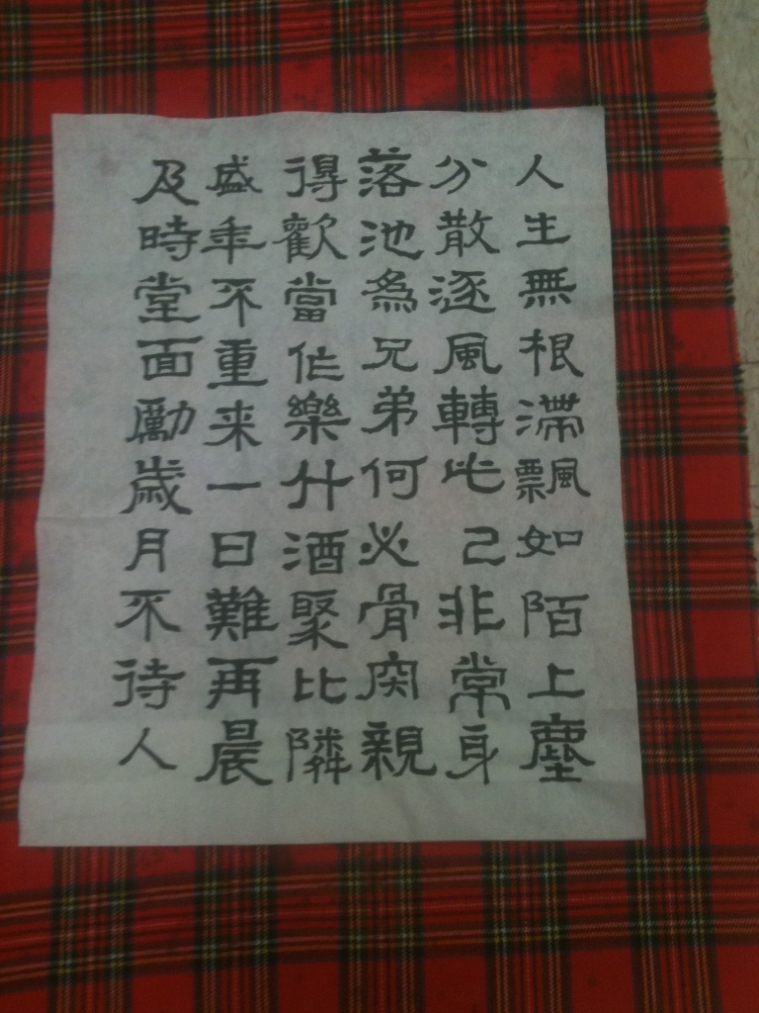 人生無根滯飄如陌上塵
分散逐風轉此已非常身
落池為兄弟何必骨肉親
得歡當作樂斗酒聚比隣
盛年不重来一日難再晨
及時堂面勵歲月不待人